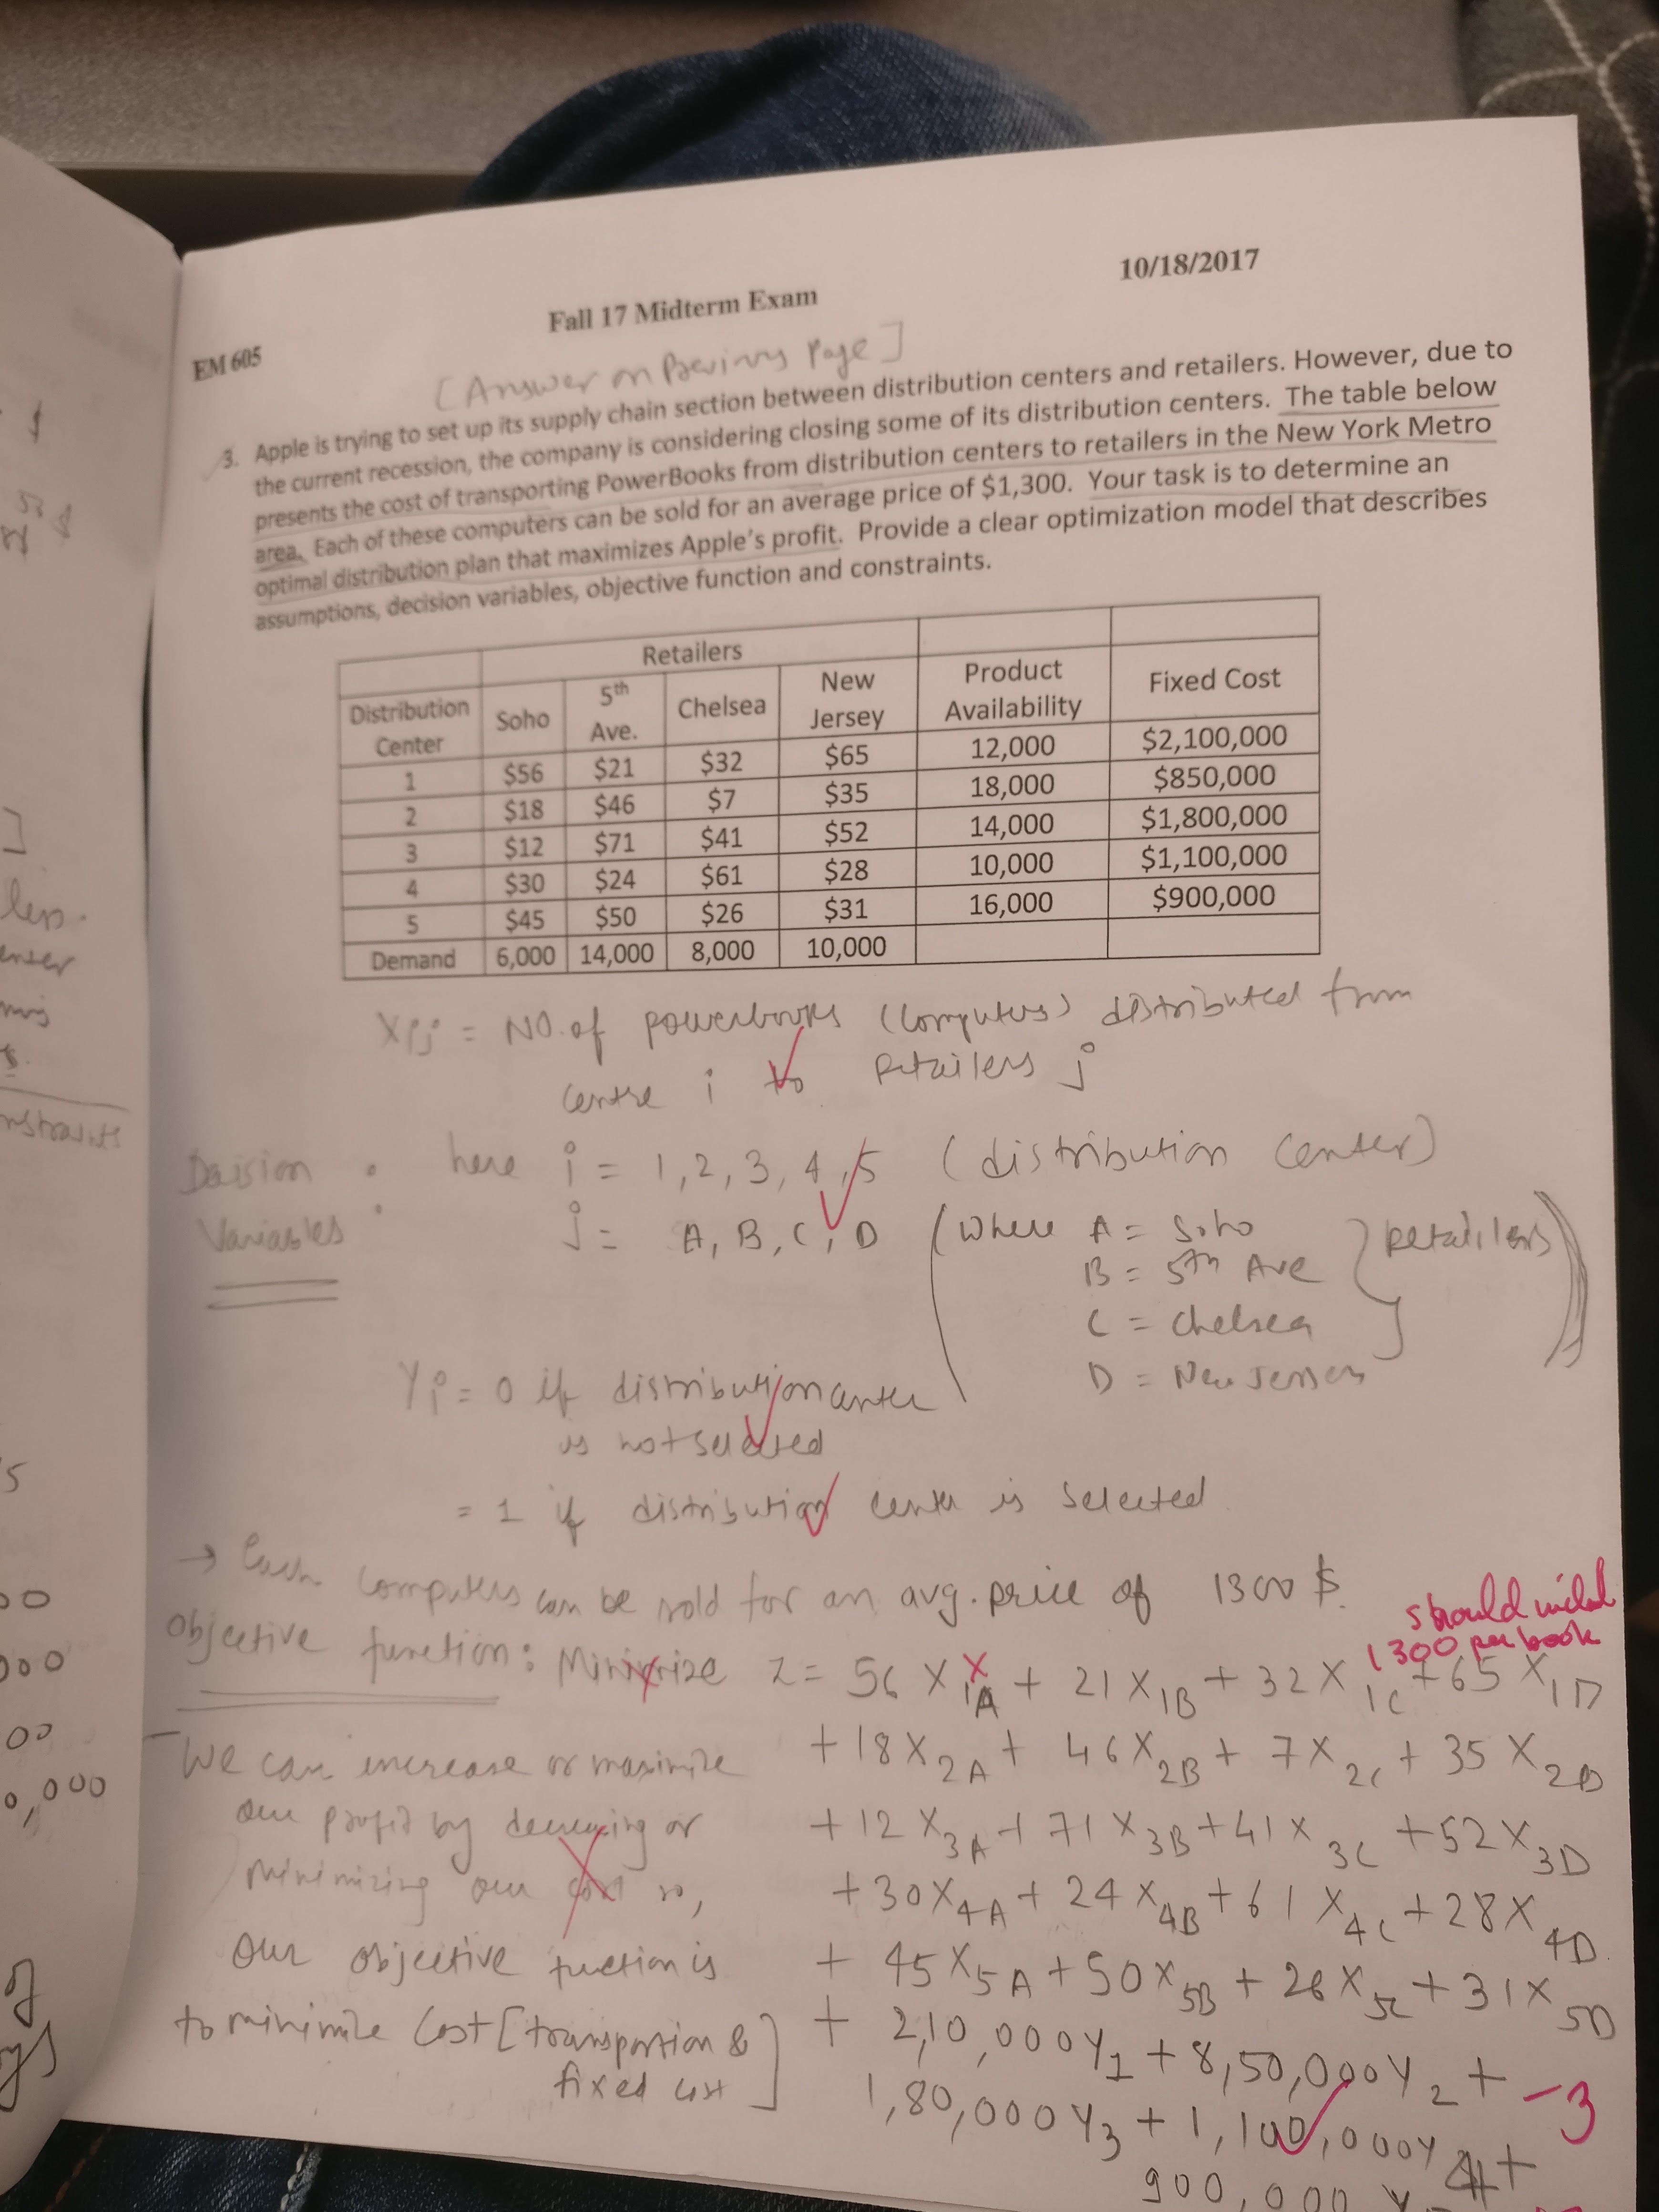 10/18/2017
Fall 17 Midterm Exam
EM 605
[Answer on Previous Page]
3. Apple is trying to set up its supply chain section between distribution centers and retailers. However, due to
the current recession, the company is considering closing some of its distribution centers. The table below
presents the cost of transporting PowerBooks from distribution centers to retailers in the New York Metro
area. Each of these computers can be sold for an average price of $1,300. Your task is to determine an
optimal distribution plan that maximizes Apple's profit. Provide a clear optimization model that describes
assumptions, decision variables, objective function and constraints.
Retailers
Distribution Center Soho 5th Ave. Chelsea New Jersey Product Availability Fixed Cost
1 $56 $21 $32 $65 12,000 $2,100,000
2 $18 $46 $7 $35 18,000 $850,000
3 $12 $71 $41 $52 14,000 $1,800,000
4 $30 $24 $61 $28 10,000 $1,100,000
5 $45 $50 $26 $31 16,000 $900,000
Demand 6,000 14,000 8,000 10,000
Xij = NO. of powerbooks (Computers) distributed from
centre i to Retailers j
Decision : here i = 1, 2, 3, 4, 5 (distribution center)
Variables j = A, B, C, D (where A = Soho
B = 5th Ave
C = Chelsea
D = New Jersey
Retailers)
Yi = 0 if distribution center
is not selected
= 1 if distribution center is selected
→ Each computers can be sold for an avg. price of 1300 $.
should includ
1300 per book
Objective function: Minimize Z = 56 X1A + 21 X1B + 32 X1C + 65 X1D
+ 18 X2A + 46 X2B + 7 X2C + 35 X2D
+ 12 X3A + 71 X3B + 41 X3C + 52 X3D
+ 30 X4A + 24 X4B + 61 X4C + 28 X4D
+ 45 X5A + 50 X5B + 26 X5C + 31 X5D
+ 2,10,000 Y1 + 8,50,000 Y2 +
1,80,000 Y3 + 1,100,000 Y4 +
900,000 Y
-3
We can increase or maximize
our profit by decreasing or
minimizing our cost so,
Our objective function is
to minimize Cost [transportion &
fixed cost]